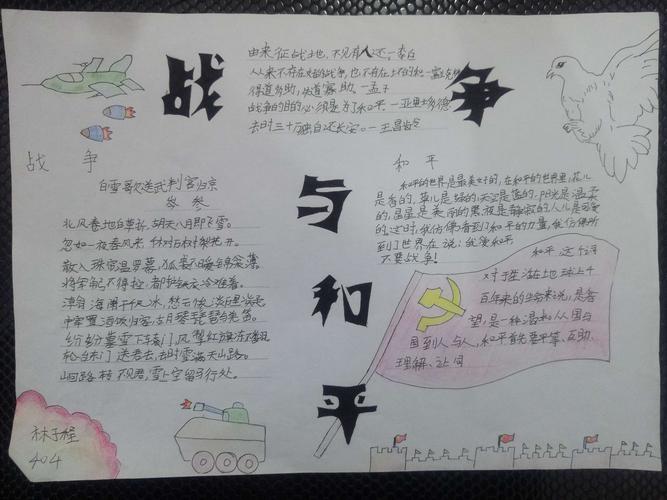 战争与和平
由来征战地，不见有人还。—李白
从来不存在好的战争，也不存在坏的和平—富兰克林
得道多助，失道寡助。—孟子
战争的目的必须是为了和平—亚里士多德
去时三十万，独自还长安。—王昌龄
战 争
白雪歌送武判官归京
岑 参
北风卷地白草折，胡天八月即飞雪。
忽如一夜春风来，千树万树梨花开。
散入珠帘湿罗幕，狐裘不暖锦衾薄。
将军角弓不得控，都护铁衣冷难着。
瀚海阑干百丈冰，愁云惨淡万里凝。
中军置酒饮归客，胡琴琵琶与羌笛。
纷纷暮雪下辕门，风掣红旗冻不翻。
轮台东门送君去，去时雪满天山路。
山回路转不见君，雪上空留马行处。
和 平
和平的世界是最美好的，在和平的世界里，花儿
是香的，草儿是绿的，天空是蓝的，阳光是温柔
的，星星是美丽的，黑夜是静寂的，人儿是可爱
的。这时，我仿佛看到了和平的力量，我仿佛听
到了世界在说：我爱和平
不要战争！
和平 这个词
对于生活在地球上千
百年来的生命来说，是希
望，是一种温和，从国与
国到人与人，和平首先要平等、互助、
理解、让同
林子程
404